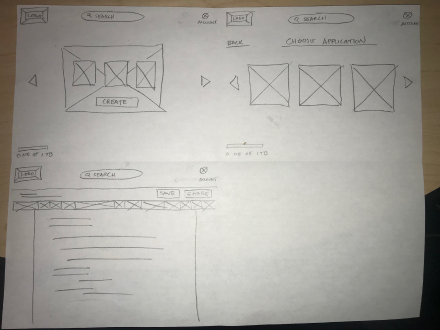 LOGO
SEARCH
ACCOUNT
CREATE
LOGO
SEARCH
ACCOUNT
BACK
CHOOSE APPLICATION
LOGO
SEARCH
SAVE
SHARE